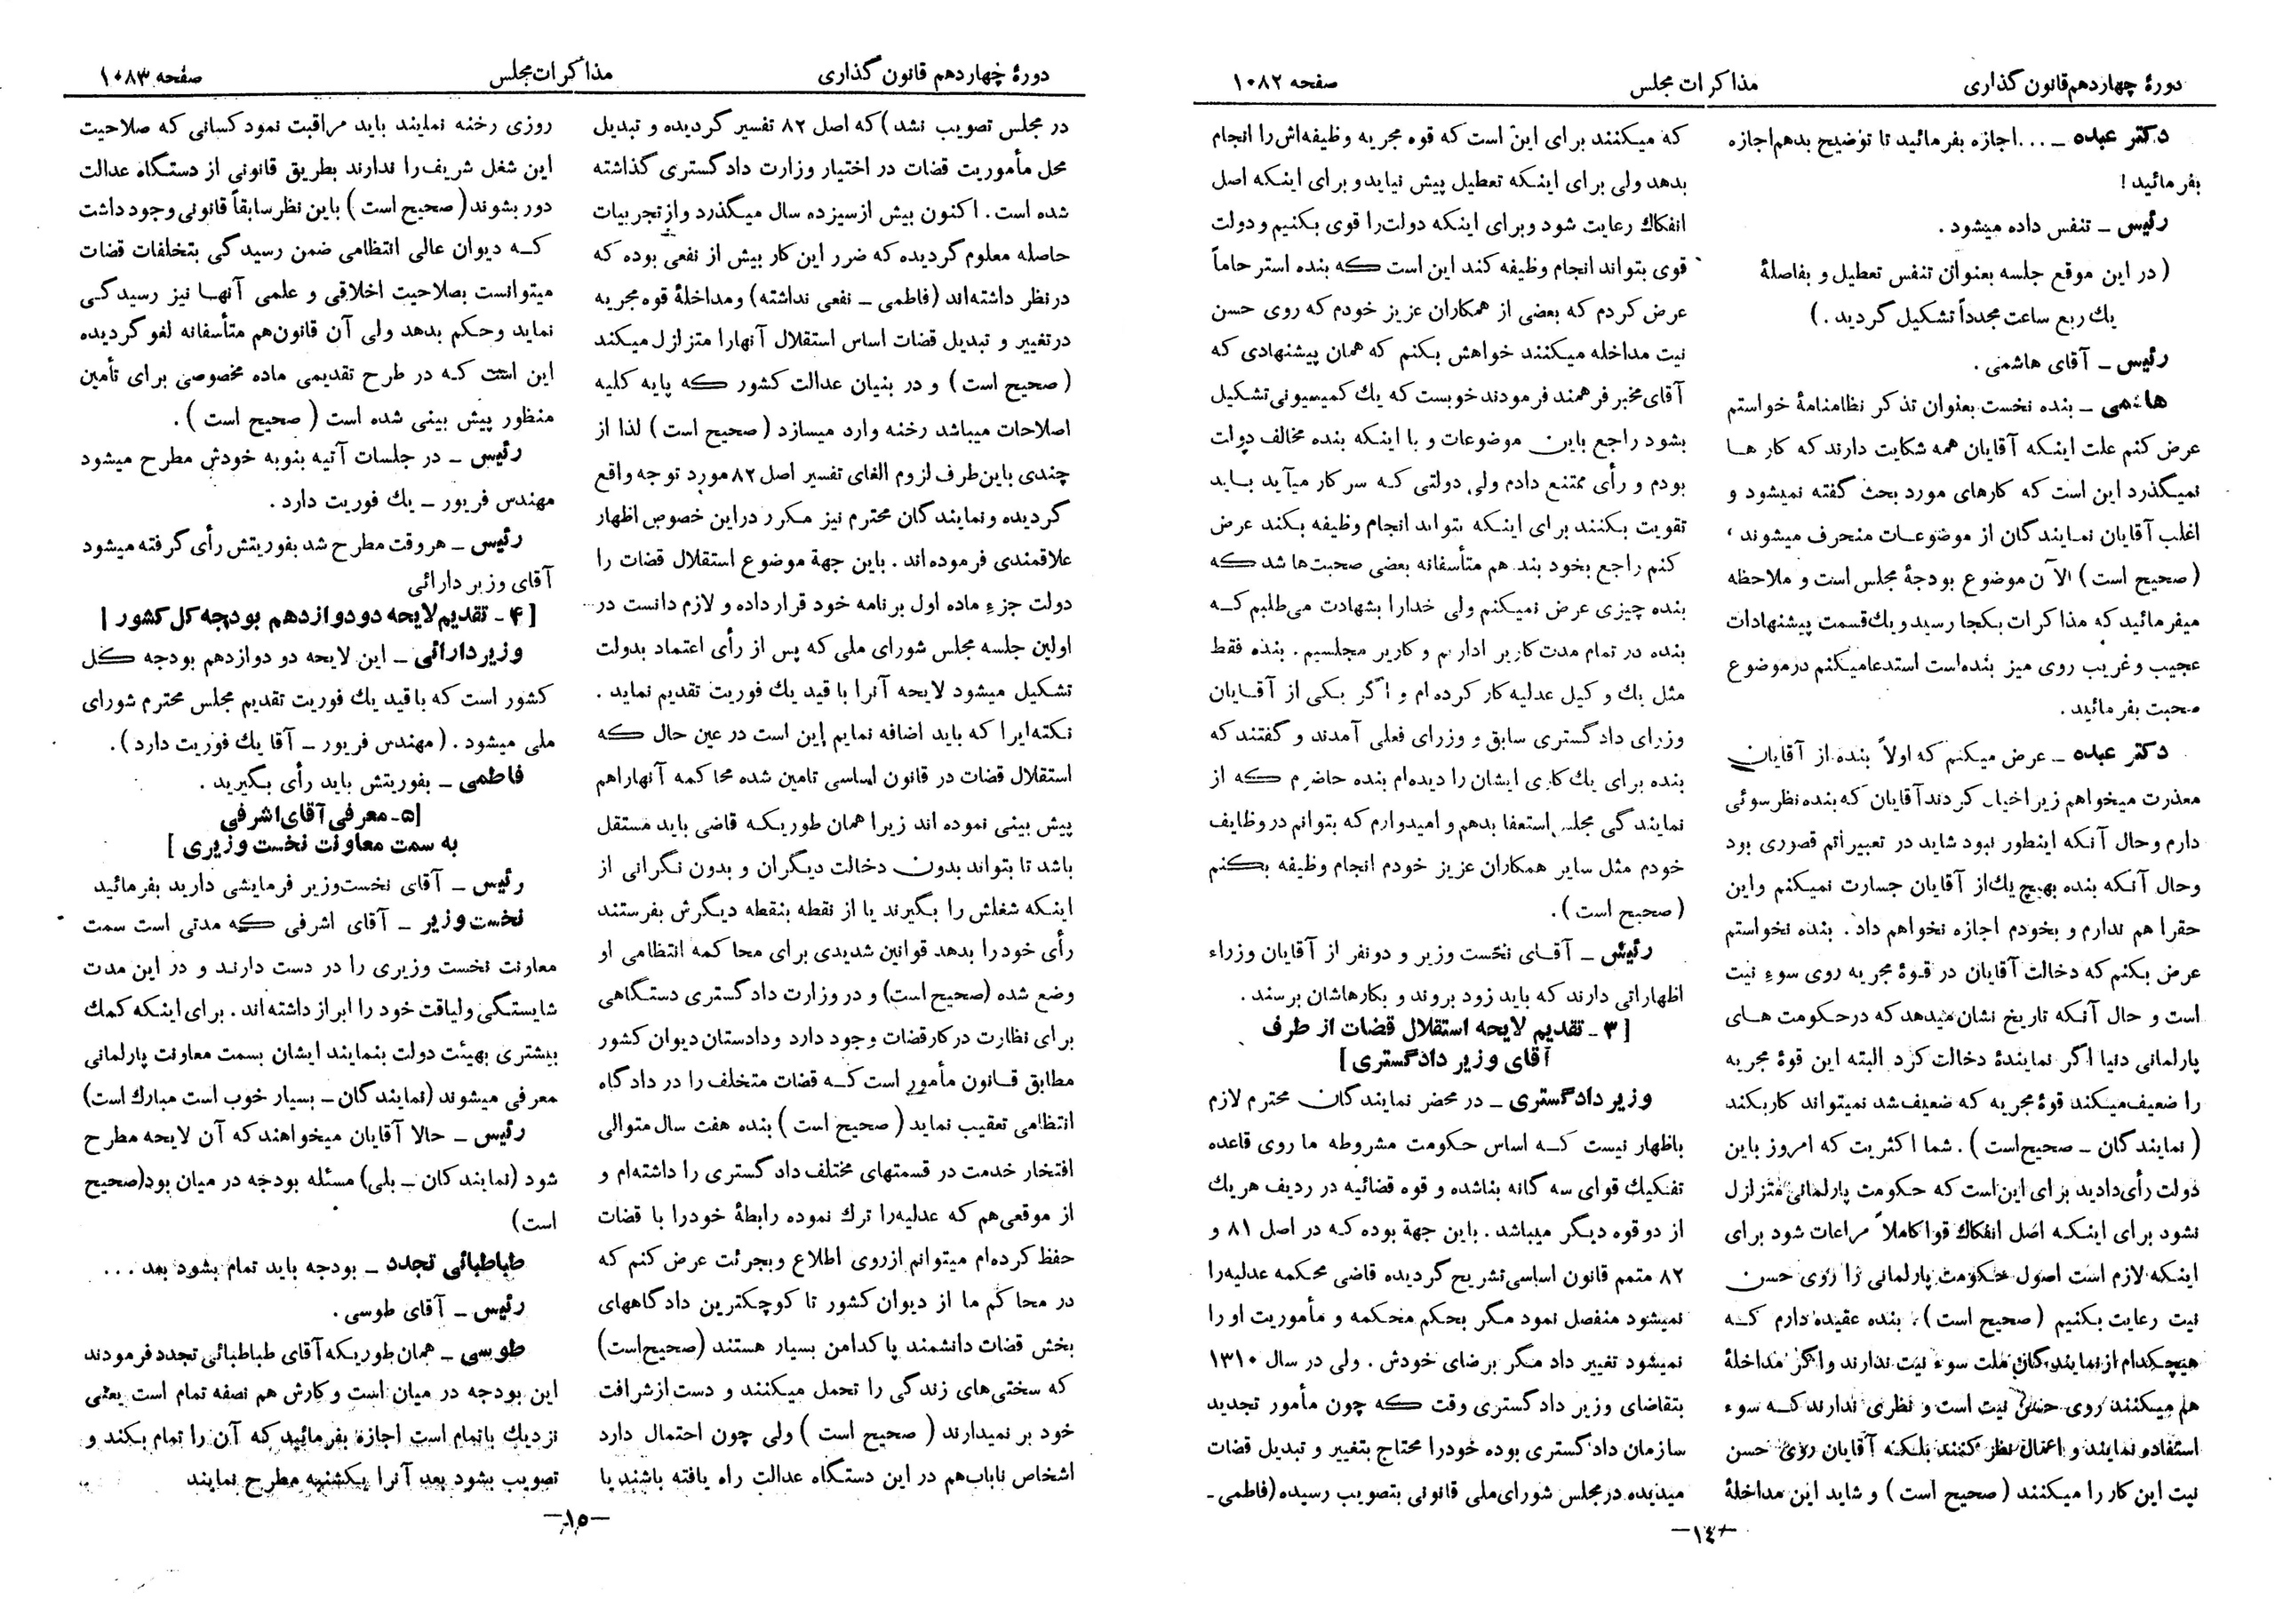 دورهٔ چهاردهم قانون گذاری
مذاکرات مجلس
صفحه ۱۰۸۲
دکتر عبده ـ ... اجازه بفرمائید تا توضیح بدهم اجازه
بفرمائید !
رئیس ـ تنفس داده میشود .
( در این موقع جلسه بعنوان تنفس تعطیل و بفاصلهٔ
یك ربع ساعت مجدداً تشکیل گردید . )
رئیس ـ آقای هاشمی .
هاشمی ـ بنده نخست بعنوان تذکر نظامنامهٔ خواستم
عرض کنم علت اینکه آقایان همه شکایت دارند که کار ها
نمیگذرد این است که کارهای مورد بحث گفته نمیشود و
اغلب آقایان نمایندگان از موضوعات منحرف میشوند ،
( صحیح است ) الآن موضوع بودجهٔ مجلس است و ملاحظه
میفرمائید که مذاکرات بکجا رسید و یك قسمت پیشنهادات
عجیب و غریب روی میز بنده است استدعا میکنم در موضوع
صحبت بفرمائید .
دکتر عبده ـ عرض میکنم که اولاً بنده از آقایان
معذرت میخواهم زیرا خیال کردند آقایان که بنده نظر سوئی
دارم و حال آنکه اینطور نبود شاید در تعبیراتم قصوری بود
وحال آنکه بنده بهیچ یك از آقایان جسارت نمیکنم و این
حقرا هم ندارم و بخودم اجازه نخواهم داد . بنده نخواستم
عرض بکنم که دخالت آقایان در قوهٔ مجریه روی سوء نیت
است و حال آنکه تاریخ نشان میدهد که در حکومت های
پارلمانی دنیا اگر نمایندهٔ دخالت کرد البته این قوهٔ مجریه
را ضعیف میکند قوهٔ مجریه که ضعیف شد نمیتواند کار بکند
( نمایندگان ـ صحیح است ) . شما اکثریت که امروز باین
دولت رأی دادید برای این است که حکومت پارلمانی متزلزل
نشود برای اینکه اصل انفکاك قوا کاملاً مراعات شود برای
اینکه لازم است اصول حکومت پارلمانی را روی حسن
نیت رعایت بکنیم ( صحیح است ) ، بنده عقیده دارم که
هیچکدام از نمایندگان ملت سوء نیت ندارند و اگر مداخلهٔ
هم میکنند روی حسن نیت است و نظری ندارند که سوء
استفاده نمایند و اعمال نظر کنند بلکه آقایان روی حسن
نیت این کار را میکنند ( صحیح است ) و شاید این مداخلهٔ
که میکنند برای این است که قوه مجریه وظیفه‌اش را انجام
بدهد ولی برای اینکه تعطیل پیش نیاید و برای اینکه اصل
انفکاك رعایت شود و برای اینکه دولت را قوی بکنیم و دولت
قوی بتواند انجام وظیفه کند این است که بنده استرحاماً
عرض کردم که بعضی از همکاران عزیز خودم که روی حسن
نیت مداخله میکنند خواهش بکنم که همان پیشنهادی که
آقای مخبر فرهمند فرمودند خوبست که یك کمیسیونی تشکیل
بشود راجع باین موضوعات و با اینکه بنده مخالف دولت
بودم و رأی ممتنع دادم ولی دولتی که سر کار میآید باید
تقویت بکنند برای اینکه بتواند انجام وظیفه بکند عرض
کنم راجع بخود بنده هم متأسفانه بعضی صحبت‌ها شد که
بنده چیزی عرض نمیکنم ولی خدارا بشهادت می‌طلبم که
بنده در تمام مدت کاریر اداریم و کاریر مجلسیم . بنده فقط
مثل یك وکیل عدلیه کار کرده‌ام و اگر یکی از آقایان
وزرای دادگستری سابق و وزرای فعلی آمدند و گفتند که
بنده برای یك کاری ایشان را دیده‌ام بنده حاضرم که از
نمایندگی مجلس استعفا بدهم و امیدوارم که بتوانم در وظایف
خودم مثل سایر همکاران عزیز خودم انجام وظیفه بکنم
( صحیح است ) .
رئیس ـ آقای نخست وزیر و دو نفر از آقایان وزراء
اظهاراتی دارند که باید زود بروند و بکارهاشان برسند .
[ ۳ ـ تقدیم لایحه استقلال قضات از طرف
آقای وزیر دادگستری ]
وزیر دادگستری ـ در محضر نمایندگان محترم لازم
باظهار نیست که اساس حکومت مشروطه ما روی قاعده
تفکیك قوای سه گانه بنا شده و قوه قضائیه در ردیف هر یك
از دو قوه دیگر میباشد . باین جهة بوده که در اصل ۸۱ و
۸۲ متمم قانون اساسی تشریح گردیده قاضی محکمه عدلیه‌را
نمیشود منفصل نمود مگر بحکم محکمه و مأموریت او را
نمیشود تغییر داد مگر برضای خودش . ولی در سال ۱۳۱۰
بتقاضای وزیر دادگستری وقت که چون مأمور تجدید
سازمان دادگستری بوده خودرا محتاج بتغییر و تبدیل قضات
میدیده در مجلس شورای ملی قانونی بتصویب رسیده (فاطمی ـ
ـ ١٤ ـ
دورهٔ چهاردهم قانون گذاری
مذاکرات مجلس
صفحه ۱۰۸۳
در مجلس تصویب نشد ) که اصل ۸۲ تفسیر گردیده و تبدیل
محل مأموریت قضات در اختیار وزارت دادگستری گذاشته
شده است . اکنون بیش از سیزده سال میگذرد و از تجربیات
حاصله معلوم گردیده که ضرر این کار بیش از نفعی بوده که
در نظر داشته‌اند (فاطمی ـ نفعی نداشته) و مداخلهٔ قوه مجریه
در تغییر و تبدیل قضات اساس استقلال آنهارا متزلزل میکند
( صحیح است ) و در بنیان عدالت کشور که پایه کلیه
اصلاحات میباشد رخنه وارد میسازد ( صحیح است ) لذا از
چندی باین طرف لزوم الغای تفسیر اصل ۸۲ مورد توجه واقع
گردیده و نمایندگان محترم نیز مکرر در این خصوص اظهار
علاقمندی فرموده‌اند . باین جهة موضوع استقلال قضات را
دولت جزء ماده اول برنامه خود قرار داده و لازم دانست در
اولین جلسه مجلس شورای ملی که پس از رأی اعتماد بدولت
تشکیل میشود لایحه آنرا با قید یك فوریت تقدیم نماید .
نکته‌ایرا که باید اضافه نمایم این است در عین حال که
استقلال قضات در قانون اساسی تامین شده محاکمه آنهاراهم
پیش بینی نموده اند زیرا همان طوریکه قاضی باید مستقل
باشد تا بتواند بدون دخالت دیگران و بدون نگرانی از
اینکه شغلش را بگیرند یا از نقطه بنقطه دیگرش بفرستند
رأی خودرا بدهد قوانین شدیدی برای محاکمه انتظامی او
وضع شده (صحیح است) و در وزارت دادگستری دستگاهی
برای نظارت در کار قضات وجود دارد و دادستان دیوان کشور
مطابق قانون مأمور است که قضات متخلف را در دادگاه
انتظامی تعقیب نماید ( صحیح است ) بنده هفت سال متوالی
افتخار خدمت در قسمتهای مختلف دادگستری را داشته‌ام و
از موقعی‌هم که عدلیه‌را ترك نموده رابطهٔ خودرا با قضات
حفظ کرده‌ام میتوانم از روی اطلاع و بجرئت عرض کنم که
در محاکم ما از دیوان کشور تا کوچکترین دادگاههای
بخش قضات دانشمند پاکدامن بسیار هستند (صحیح است)
که سختی‌های زندگی را تحمل میکنند و دست از شرافت
خود بر نمیدارند ( صحیح است ) ولی چون احتمال دارد
اشخاص ناباب‌هم در این دستگاه عدالت راه یافته باشند یا
روزی رخنه نمایند باید مراقبت نمود کسانی که صلاحیت
این شغل شریف را ندارند بطریق قانونی از دستگاه عدالت
دور بشوند ( صحیح است ) باین نظر سابقاً قانونی وجود داشت
که دیوان عالی انتظامی ضمن رسیدگی بتخلفات قضات
میتوانست بصلاحیت اخلاقی و علمی آنها نیز رسیدگی
نماید وحکم بدهد ولی آن قانون‌هم متأسفانه لغو گردیده
این است که در طرح تقدیمی ماده مخصوصی برای تأمین
منظور پیش بینی شده است ( صحیح است ) .
رئیس ـ در جلسات آتیه بنوبه خودش مطرح میشود
مهندس فریور ـ یك فوریت دارد .
رئیس ـ هروقت مطرح شد بفوریتش رأی گرفته میشود
آقای وزیر دارائی
[ ۴ ـ تقدیم لایحه دو دوازدهم بودجه کل کشور ]
وزیر دارائی ـ این لایحه دو دوازدهم بودجه کل
کشور است که با قید یك فوریت تقدیم مجلس محترم شورای
ملی میشود . ( مهندس فریور ـ آقا یك فوریت دارد ) .
فاطمی ـ بفوریتش باید رأی بگیرید .
[۵ ـ معرفی آقای اشرفی
به سمت معاونت نخست وزیری ]
رئیس ـ آقای نخست‌وزیر فرمایشی دارید بفرمائید
نخست وزیر ـ آقای اشرفی که مدتی است سمت
معاونت نخست وزیری را در دست دارند و در این مدت
شایستگی ولیاقت خود را ابراز داشته‌اند . برای اینکه کمك
بیشتری بهیئت دولت بنمایند ایشان بسمت معاونت پارلمانی
معرفی میشوند (نمایندگان ـ بسیار خوب است مبارك است)
رئیس ـ حالا آقایان میخواهند که آن لایحه مطرح
شود (نمایندگان ـ بلی) مسئله بودجه در میان بود(صحیح
است)
طباطبائی تجدد ـ بودجه باید تمام بشود بعد ...
رئیس ـ آقای طوسی .
طوسی ـ همان طوریکه آقای طباطبائی تجدد فرمودند
این بودجه در میان است و کارش هم نصفه تمام است یعنی
نزدیك باتمام است اجازه بفرمائید که آن را تمام بکند و
تصویب بشود بعد آنرا یکشنبه مطرح نمایند
ـ ١٥ ـ